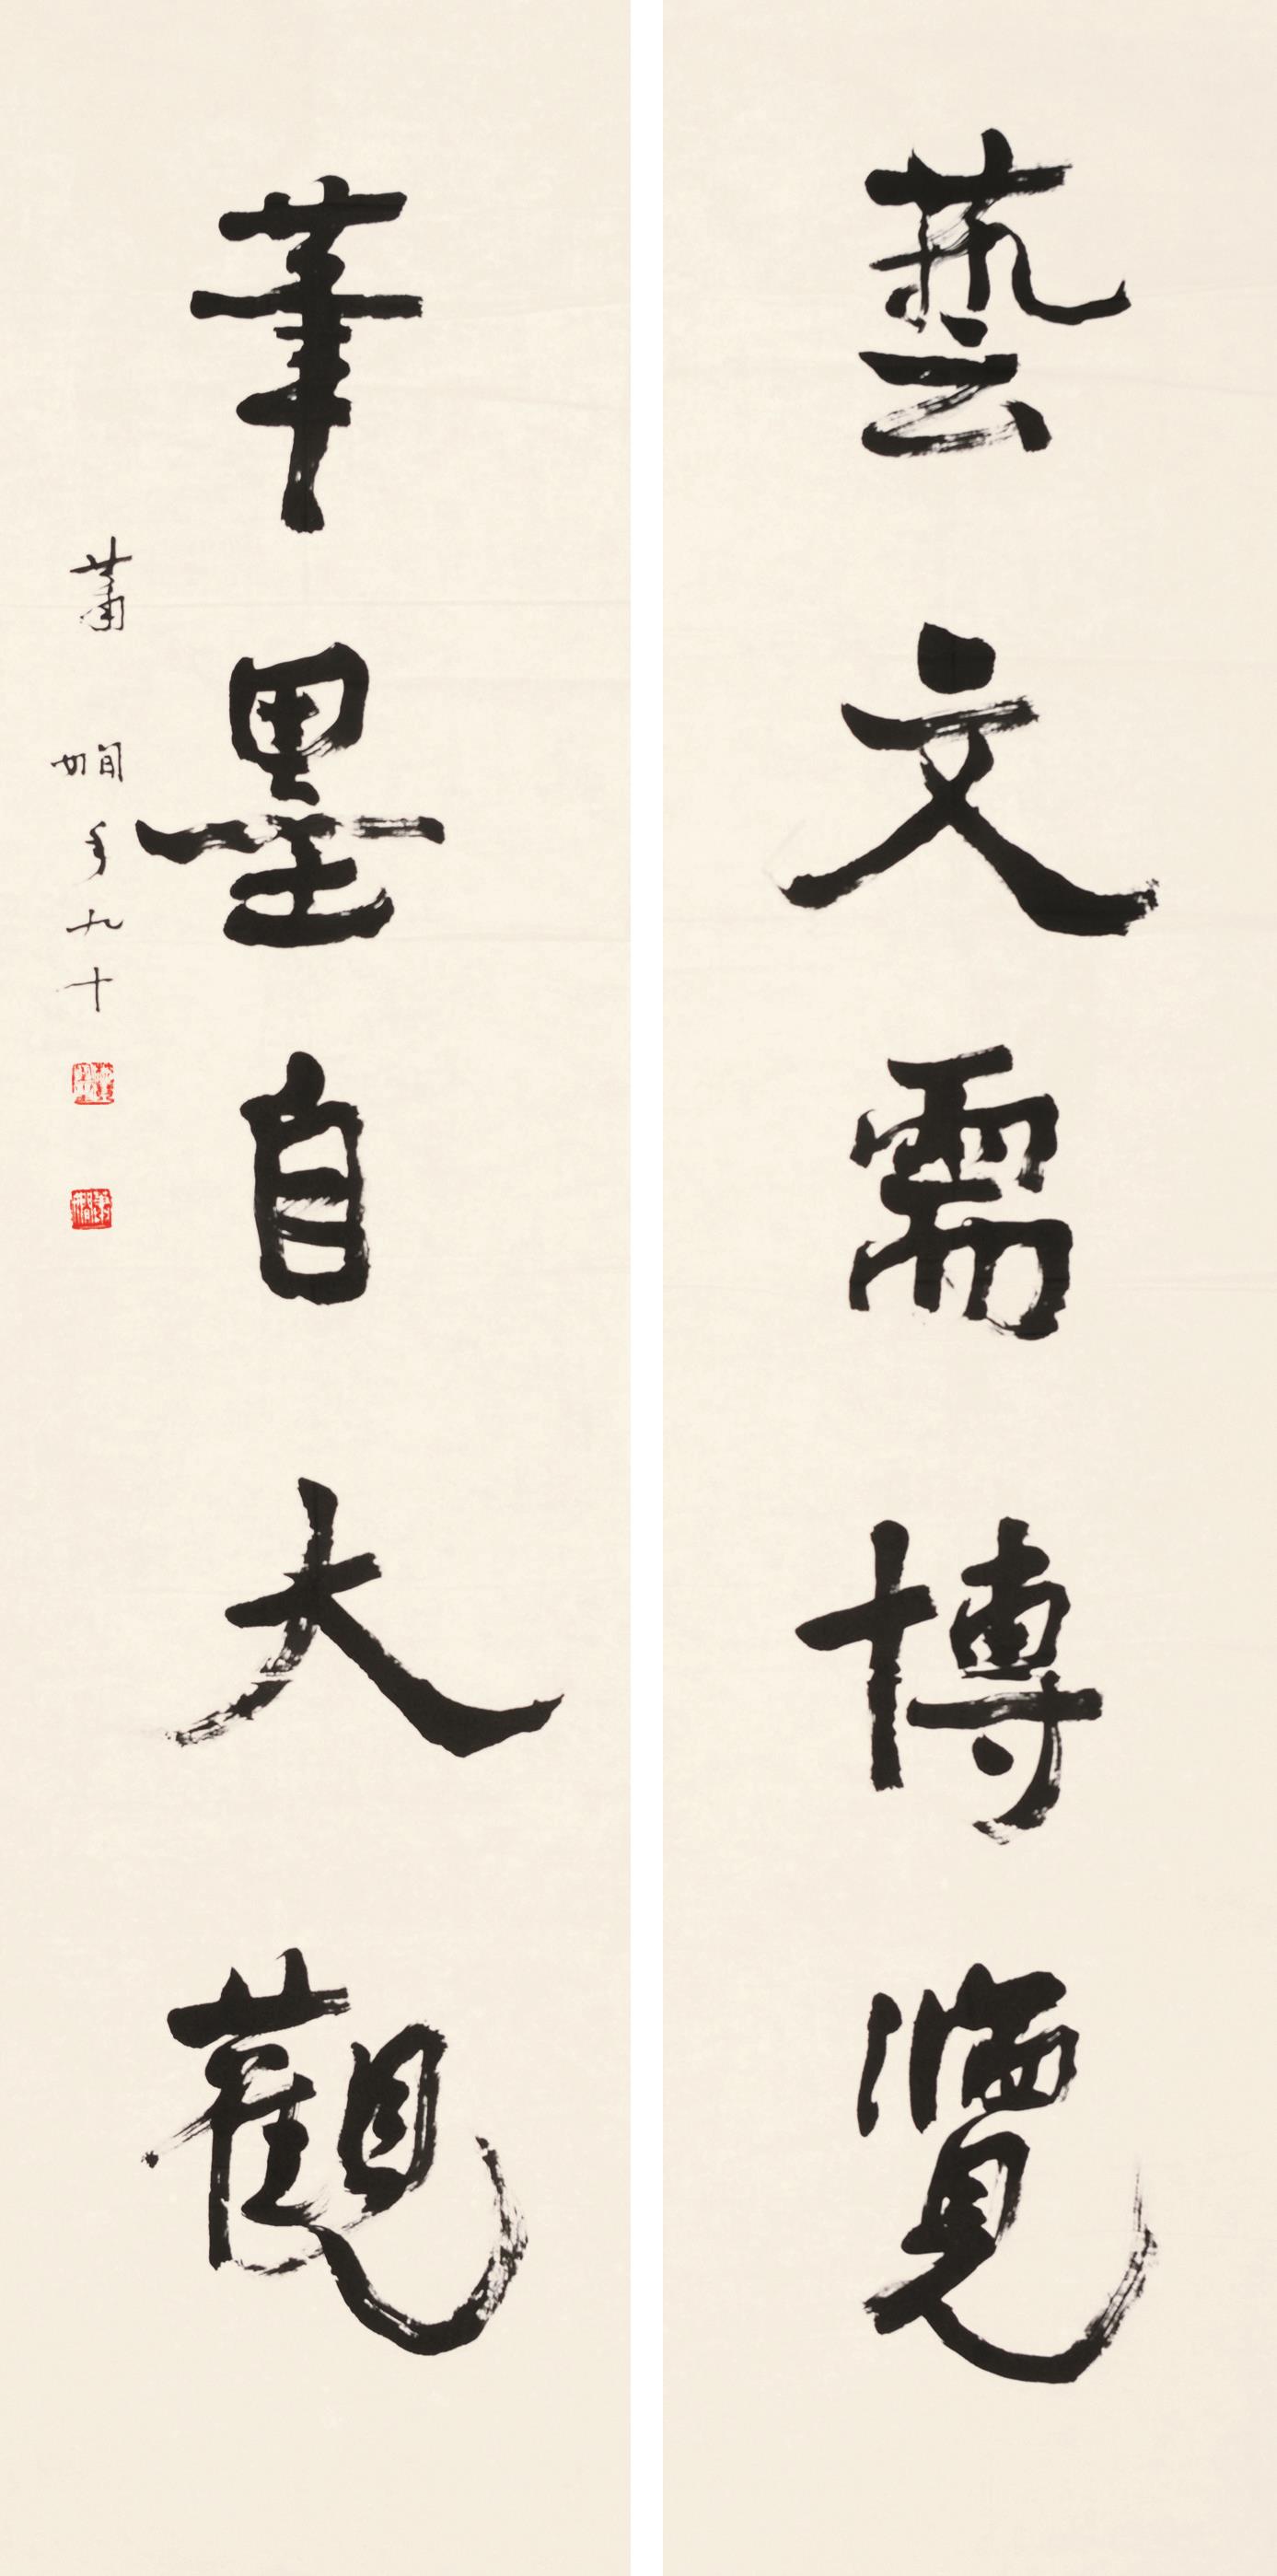 藝文需博覽
筆墨自大觀
蕭嫻年九十